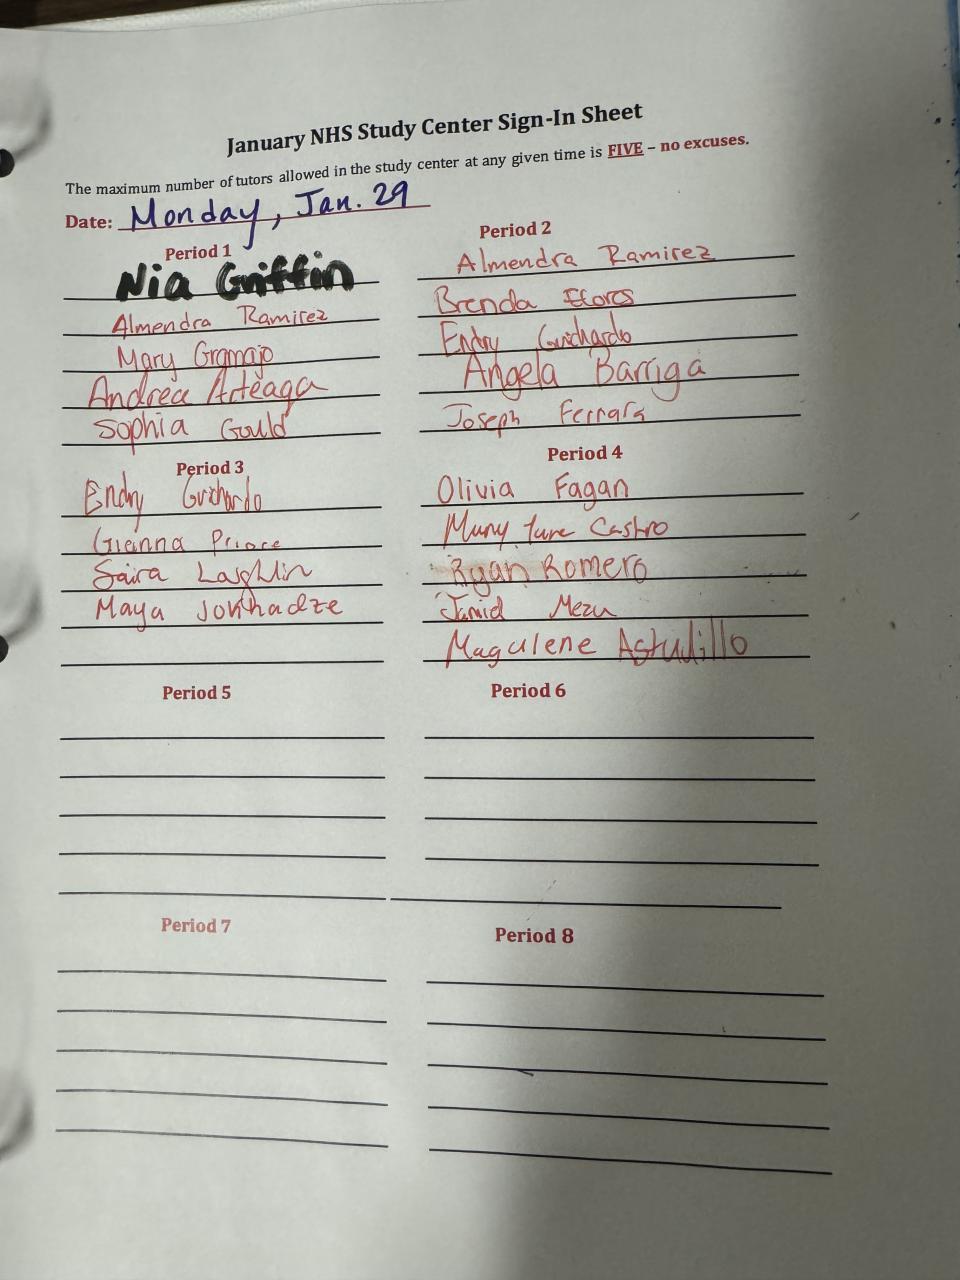 January NHS Study Center Sign-In Sheet
The maximum number of tutors allowed in the study center at any given time is FIVE – no excuses.
Date: Monday, Jan. 29
Period 1
Nia Griffin
Almendra Ramirez
Mary Gramajo
Andrea Arteaga
Sophia Gould
Period 2
Almendra Ramirez
Brenda
Endry Guichardo
Angela Barriga
Joseph Ferrara
Period 3
Endry Guichardo
Gienna Priore
Saira Laghlin
Maya Jokhadze
Period 4
Olivia Fagan
Castro
Ryan Romero
Magulene Astudillo
Period 5
Period 6
Period 7
Period 8